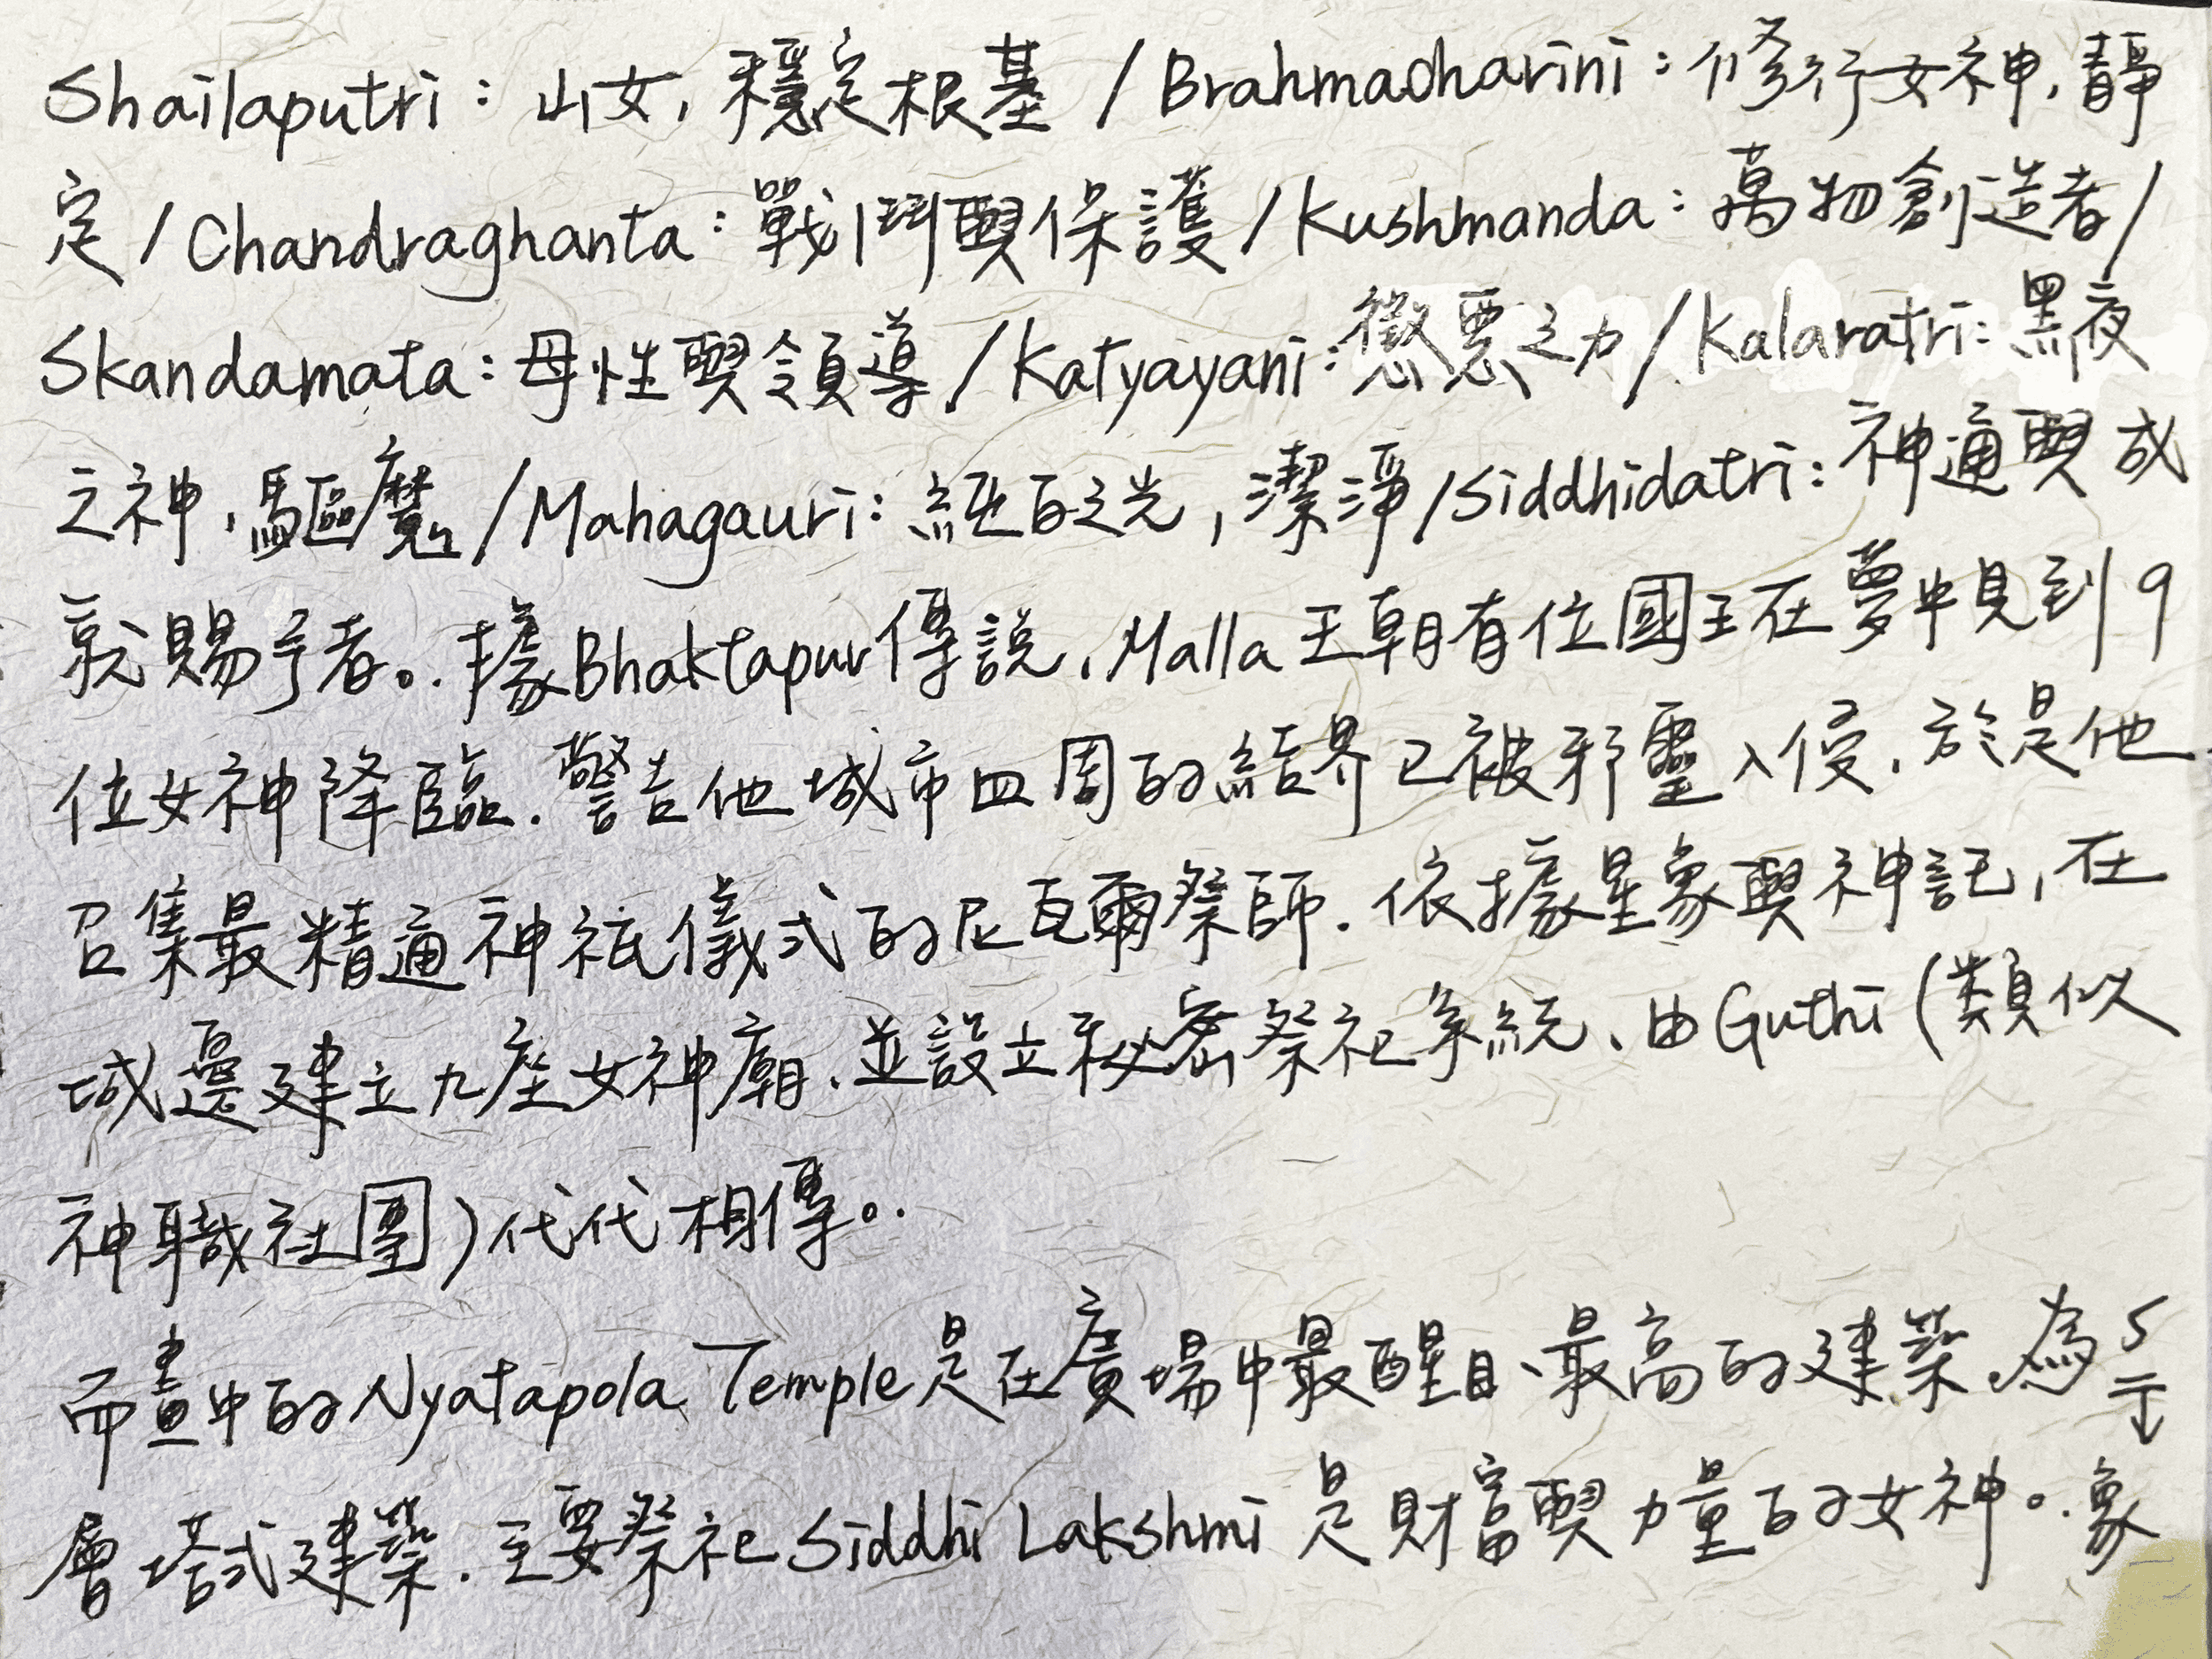 Shailaputri：山女，穩定根基 / Brahmaoharini：修行女神，靜
定 / Chandraghanta：戰鬥與保護 / Kushmanda：萬物創造者 /
Skandamata：母性與領導 / Katyayani：懲惡之力 / Kalaratri：黑夜
之神，驅魔 / Mahagauri：純白之光，潔淨 / Siddhidatri：神通與成
就賜予者。據Bhaktapur傳說，Malla 王朝有位國王在夢中見到9
位女神降臨．警告他城市四周的結界已被邪靈入侵，於是他
召集最精通神祇儀式的尼瓦爾祭師．依據星象與神託，在
城邊建立九座女神廟，並設立秘密祭祀系統、由Guthi（類似
神職社團）代代相傳。
而畫中的Nyatapola Temple是在廣場中最醒目、最高的建築，為5
層塔式建築．主要祭祀Siddhi Lakshmi 是財富與力量的女神。象